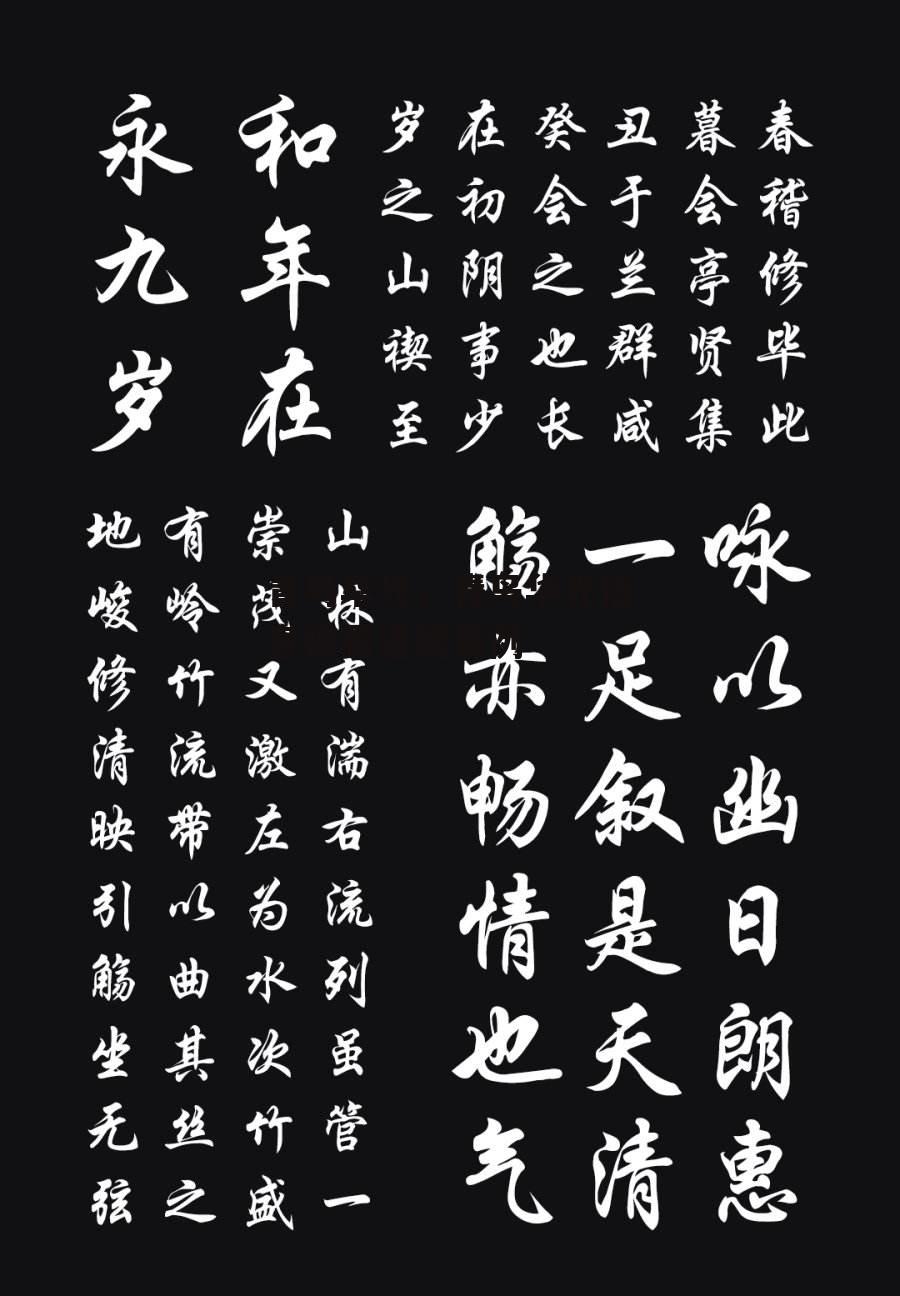 永和
九年
岁在
岁在癸丑暮春
之初会于会稽
山阴之兰亭修
禊事也群贤毕
至少长咸集此
地有崇山
峻岭茂林
修竹又有
清流激湍
映带左右
引以为流
觞曲水列
坐其次虽
无丝竹管
弦之盛一
觞一咏
亦足以
畅叙幽
情是日
也天朗
气清惠